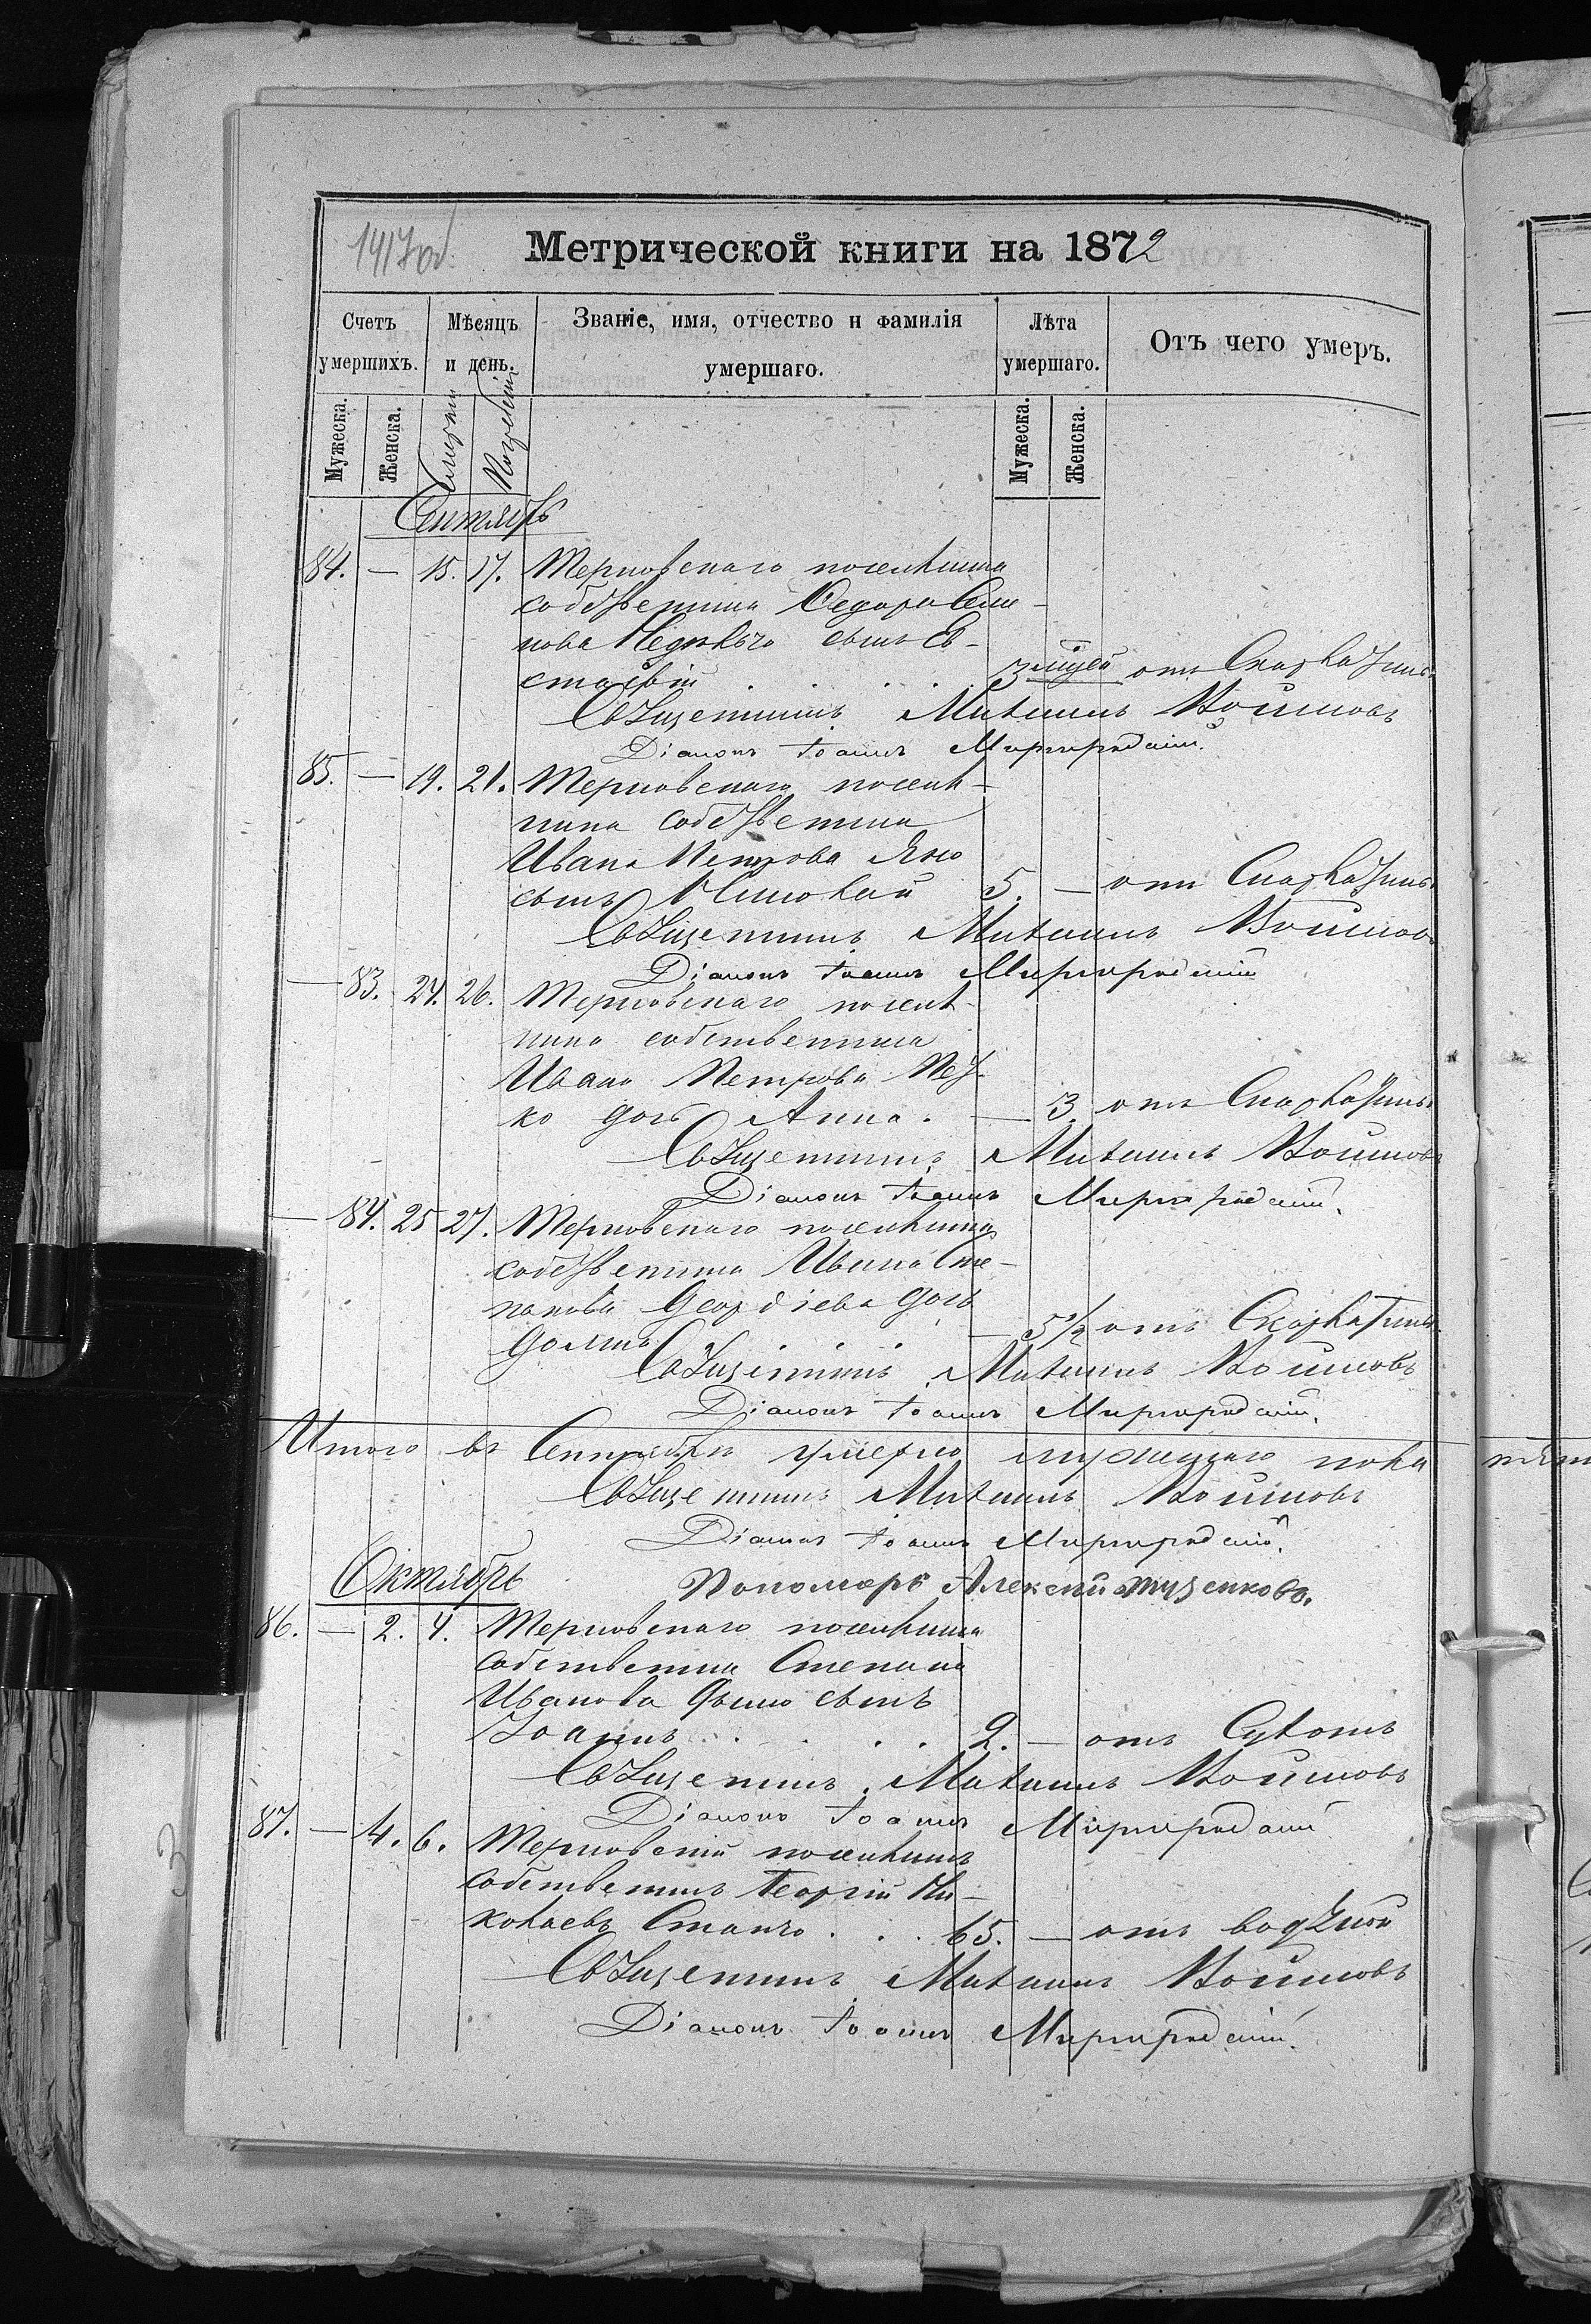 1417об
Метрической книги на 1872
Счетъ умершихъ.
Мѣсяцъ и день.
Званіе, имя, отчество и фамилія умершаго.
Лѣта умершаго.
Отъ чего умеръ.
Мужеска.
Женска.
Смерти
Погребенія
Мужеска.
Женска.
Сентябрь
84. — 15. 17. Терновскаго поселянина
собственника Ѳедора Семе-
нова сынъ Ев-
стафій . . . . 3 отъ Скарлатины
Священникъ Михаилъ Воиновъ
Діаконъ Іоаннъ Миргородскій.
85. — 19. 21. Терновскаго поселя-
нина собственника
Ивана Петрова Яню
сынъ Николай 5. — отъ Скарлатины
Священникъ Михаилъ Воиновъ
Діаконъ Іоаннъ Миргородскій
— 83. 24. 26. Терновскаго поселя-
нина собственника
Ивана Петрова
ко дочь Анна. — 3. отъ Скарлатины
Священникъ Михаилъ Воиновъ
Діаконъ Іоаннъ Миргородскій.
— 84. 25 27. Терновскаго поселянина
собственника Ивана Сте-
панова Георгіева дочь
— 5 1/2 отъ Скарлатины
Священникъ Михаилъ Воиновъ
Діаконъ Іоаннъ Миргородскій.
Итого въ Сентябрѣ умерло мужескаго пола
Священникъ Михаилъ Воиновъ
Діаконъ Іоаннъ Миргородскій.
Октябрь
Пономарь Алексѣй
86. — 2. 4. Терновскаго поселянина
собственника Степана
Иванова сынъ
Іоаннъ . . . . 2. — отъ Сухотъ
Священникъ Михаилъ Воиновъ
Діаконъ Іоаннъ Миргородскій
87. — 4. 6. Терновскій поселянинъ
собственникъ Георгій Ни-
колаевъ Станчо . . . 65. — отъ водяной
Священникъ Михаилъ Воиновъ
Діаконъ Іоаннъ Миргородскій.